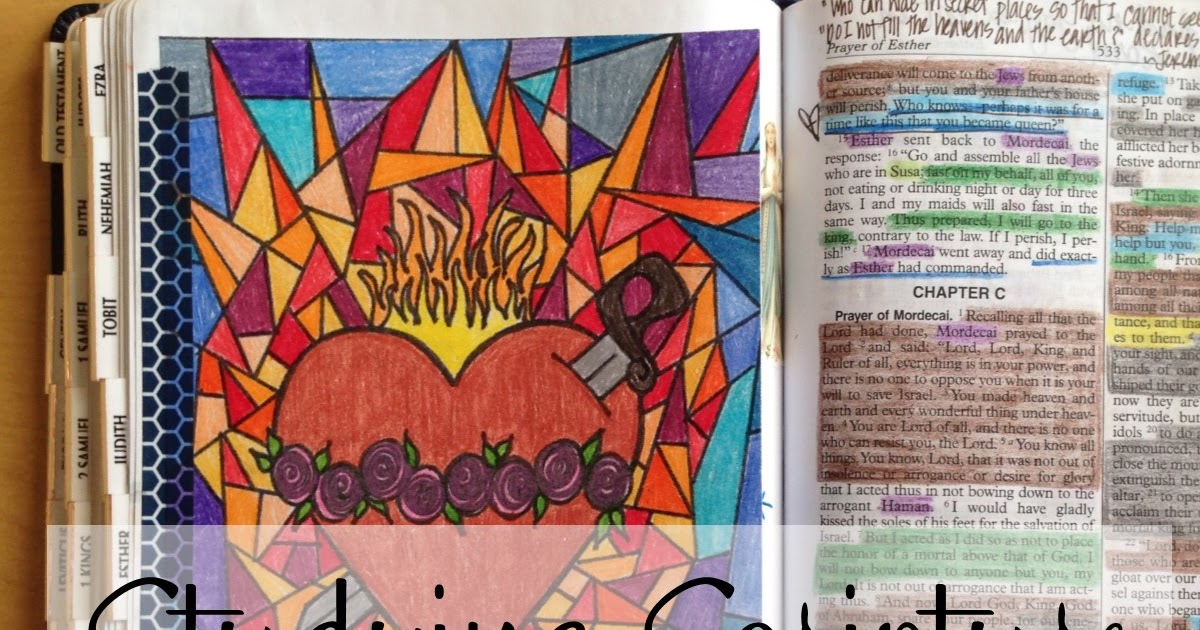 OLD TESTAMENT
RUTH
1 SAMUEL
2 SAMUEL
LEVITICUS
1 KINGS
EZRA
NEHEMIAH
TOBIT
JUDITH
ESTHER
"Who can hide in secret places so that I cannot see
"Do I not fill the heavens and the earth?" declares
Prayer of Esther
533
deliverance will come to the Jews from anoth-
er source; but you and your father's house
will perish. Who knows—perhaps it was for a
time like this that you became queen?"
15 Esther sent back to Mordecai the
response: 16 "Go and assemble all the Jews
who are in Susa; fast on my behalf, all of you,
not eating or drinking night or day for three
days. I and my maids will also fast in the
same way. Thus prepared, I will go to the
king, contrary to the law. If I perish, I per-
ish!" 17 Mordecai went away and did exact-
ly as Esther had commanded.
CHAPTER C
Prayer of Mordecai. 1 Recalling all that the
Lord had done, Mordecai prayed to the
Lord 2 and said: "Lord, Lord, King and
Ruler of all, everything is in your power, and
there is no one to oppose you when it is your
will to save Israel. 3 You made heaven and
earth and every wonderful thing under heav-
en. 4 You are Lord of all, and there is no one
who can resist you, the Lord. 5 You know all
things. You know, Lord, that it was not out of
insolence or arrogance or desire for glory
that I acted thus in not bowing down to the
arrogant Haman. 6 I would have gladly
kissed the soles of his feet for the salvation of
Israel. 7 But I acted as I did so as not to place
the honor of a mortal above that of God. I
will not bow down to anyone but you, my
Lord. It is not out of arrogance that I am act-
ing thus. 8 And now, Lord God, King, God
of Abraham, spare your people, for
refuge. 13
she put on
ing. In place
covered her
afflicted her
festive adorn
her.
14 Then she
Israel, saying
King. Help
help but you
hand. 16
my people
among all
among all
tance, and
es to them.
your sight, and
hands of our
shiped their
now they are
servitude, but
idols 20 to
pronounced,
close the
extinguish the
altar, 21 to
acclaim their
22 "Lord,
those who are
gloat over our
sel against
one who began
of us. Lord
Studying Scripture